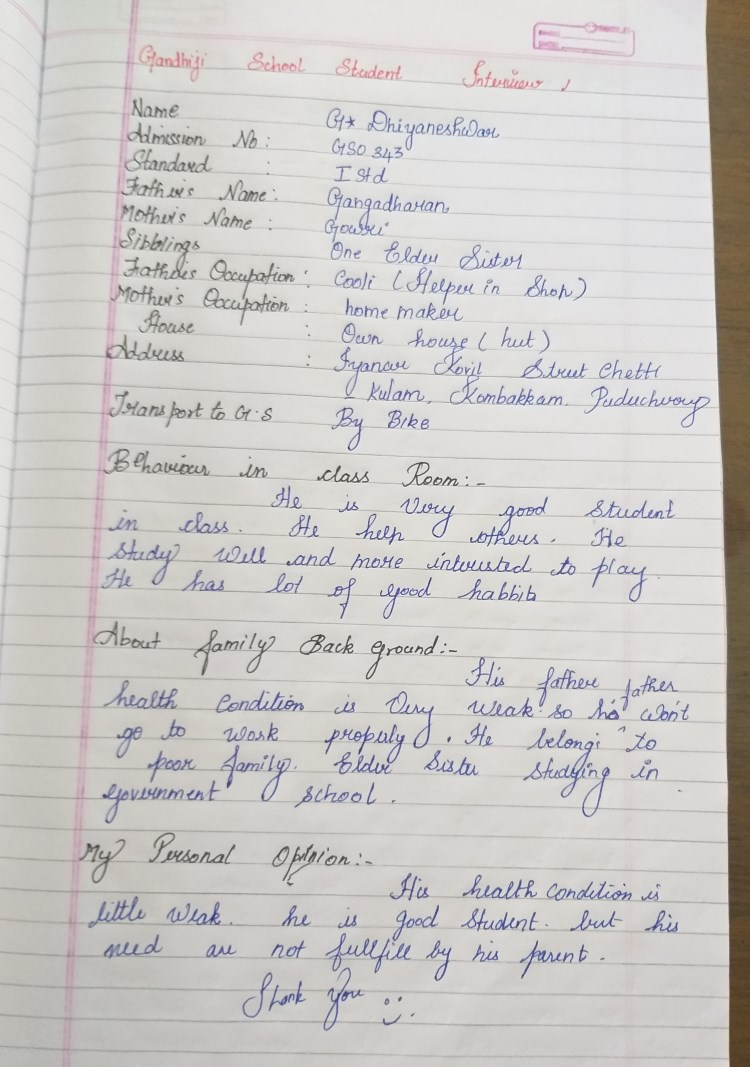 Gandhiji School Student Interview
Name G* Dhiyaneshwar
Admission No : GSO 343
Standard : I Std
Father's Name : Gangadharan
Mother's Name : Gowri
Sibblings One Elder Sister
Father's Occupation : Cooli (Helper in Shop)
Mother's Occupation : home maker
House : Own house (hut)
Address : Iyanar Kovil Street Chetti
Kulam, Kombakkam, Puducherry
Transport to G.S By Bike
Behaviour in class Room:-
He is very good Student
in class. He help others. He
study well and more interested to play.
He has lot of good habbits
About family Back ground:-
His father father
health condition is very weak so he won't
go to work properly. He belongs to
poor family. Elder Sister studying in
government school.
My Personal Opinion:-
His health condition is
little weak. he is good student. but his
need are not fullfill by his parent.
Thank You